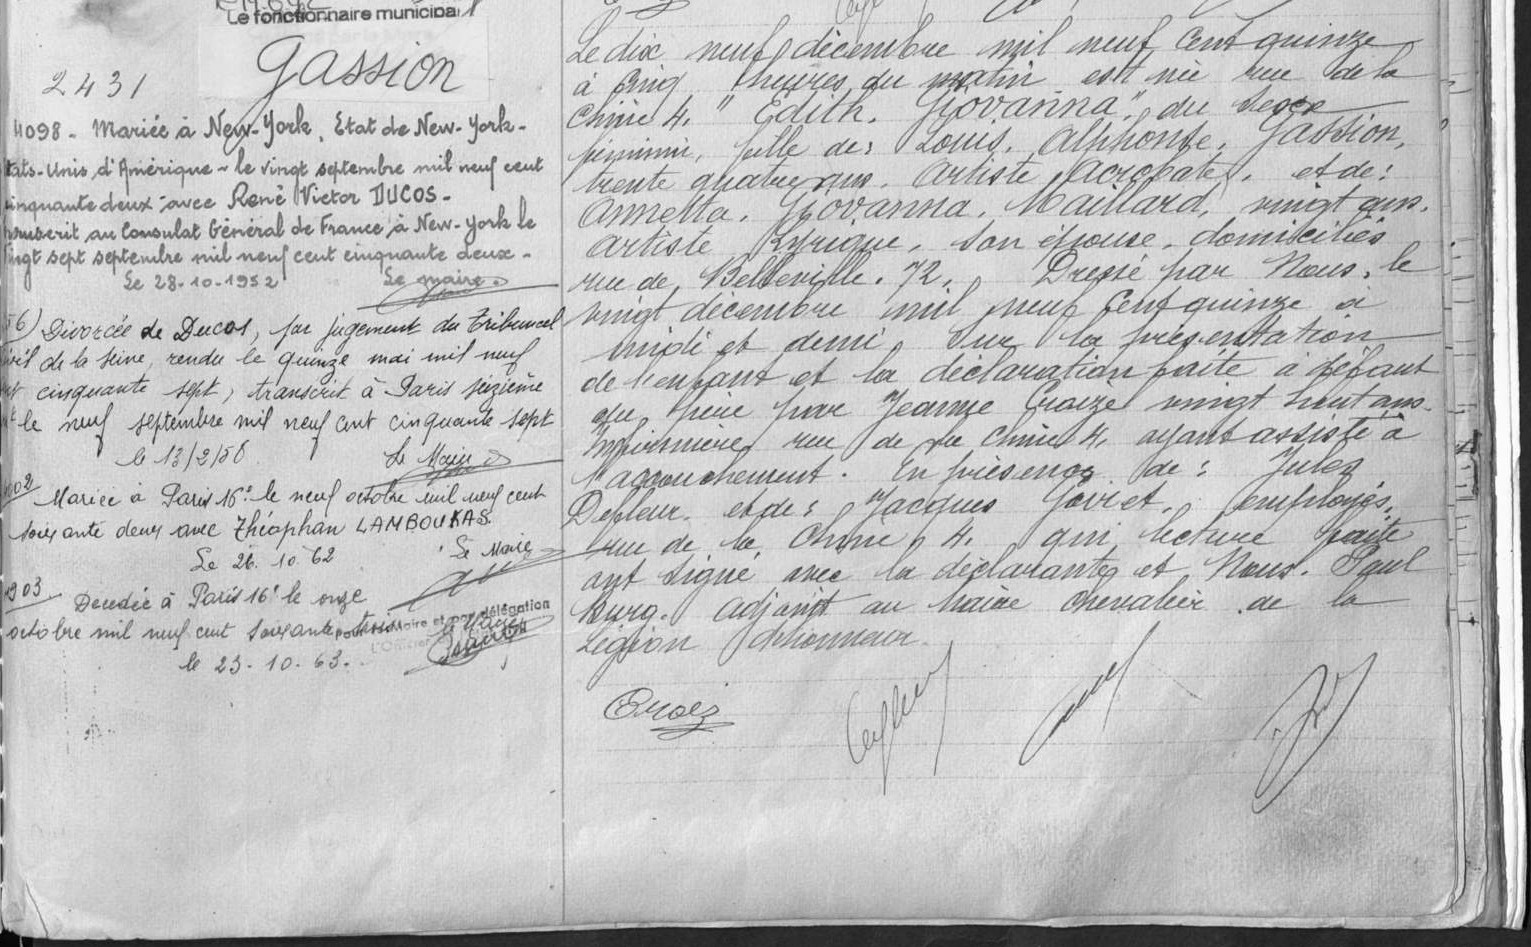 Le fonctionnaire municipal
Gassion
2431
4098 - Mariée à New-York, Etat de New-York -
tats-Unis d'Amérique - le vingt septembre mil neuf cent
inquante deux - avec René Victor DUCOS -
au Consulat Général de France à New-York le
ingt sept septembre mil neuf cent cinquante deux -
Le 28-10-1952 Le maire
56) Divorcée de Ducos, par jugement du Tribunal
ivil de la Seine, rendu le quinze mai mil neuf
cinquante sept, transcrit à Paris seizième
le neuf septembre mil neuf cent cinquante sept
le 13/2/58 Le Maire
Mariée à Paris 16e le neuf octobre mil neuf cent
soixante deux avec Théophan LAMBOUKAS.
Le 26.10 62 Le Maire
1903
Décédée à Paris 16e le onze
octobre mil neuf cent soixante trois
pour le Maire et par délégation
le 23-10-63.
Le dix neuf décembre mil neuf cent quinze
à cinq heures du matin est née rue de la
Chine 4, "Edith, Giovanna", du sexe
féminin, fille de: Louis, Alphonse, Gassion,
trente quatre ans, Artiste Acrobate, et de:
Annetta, Giovanna, Maillard, vingt ans,
Artiste Lyrique, son épouse, domiciliés
rue de Belleville, 72, Dressé par Nous, le
vingt décembre mil neuf cent quinze à
midi et demi, sur la présentation
de l'enfant et la déclaration faite à défaut
du père par Jeanne Croize vingt huit ans,
Infirmière, rue de la Chine 4, ayant assisté à
l'accouchement. En présence de: Jules
Defleur et de: Jacques Goviet, employés,
rue de la Chine, 4, qui lecture faite
ont signé avec la déclarante et Nous, Paul
Burg, adjoint au Maire Chevalier de la
Légion d'honneur.
Croize